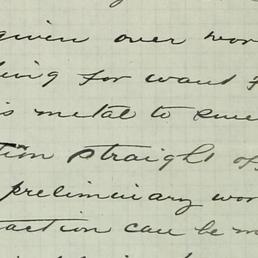 given over wor
ing for want
is metal to sme
tion straight of
preliminary wor
action can be m